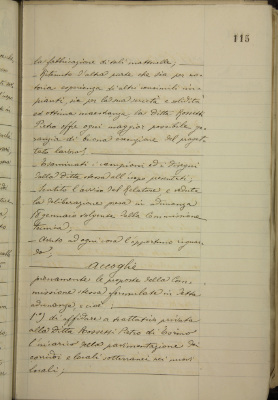 115
la fabbricazione di tali mattonelle;
- Ritenuto d'altra parte che sia per no-
toria esperienza di altri consimili im-
pianti, sia per la sua serietà e solidità
ed ottima maestranza la ditta Rossetti
Pietro offre ogni maggior possibile ga-
ranzia di buona esecuzione del proget-
tato lavoro;
- Esaminati i campioni ed i disegni
dalla ditta stessa all'uopo presentati;
- Sentito l'avviso del Relatore e vista
la deliberazione presa in adunanza
18 gennaio volgente dalla Commissione
tecnica;
- Avuto ad ogni cosa l'opportuno riguar-
do,
accoglie
pienamente le proposte della Com-
missione stessa formulate in detta
adunanza, e così:
1°) di affidare a trattativa privata
alla Ditta Rossetti Pietro di Torino
l'incarico della pavimentazione dei
corridoi e locali sotterranei nei nuovi
locali;